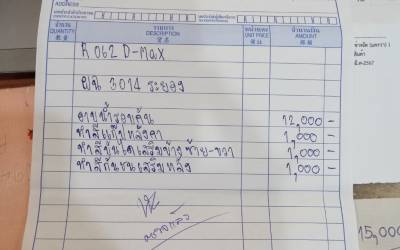 ADDRESS
จำนวน รายการ หน่วยละ จำนวนเงิน
QUANTITY DESCRIPTION UNIT PRICE AMOUNT
R 062 D-Max
ผน 3014 ระยอง
อาบน้ำรอบคัน 12,000 -
ทำสีแก้ปหลังคา 1,000 -
ทำสีบันไดเสริมข้าง ซ้าย-ขวา 1,000 -
ทำสีกันชนเสริมหลัง 1,000 -
ตรวจแล้ว
15,000